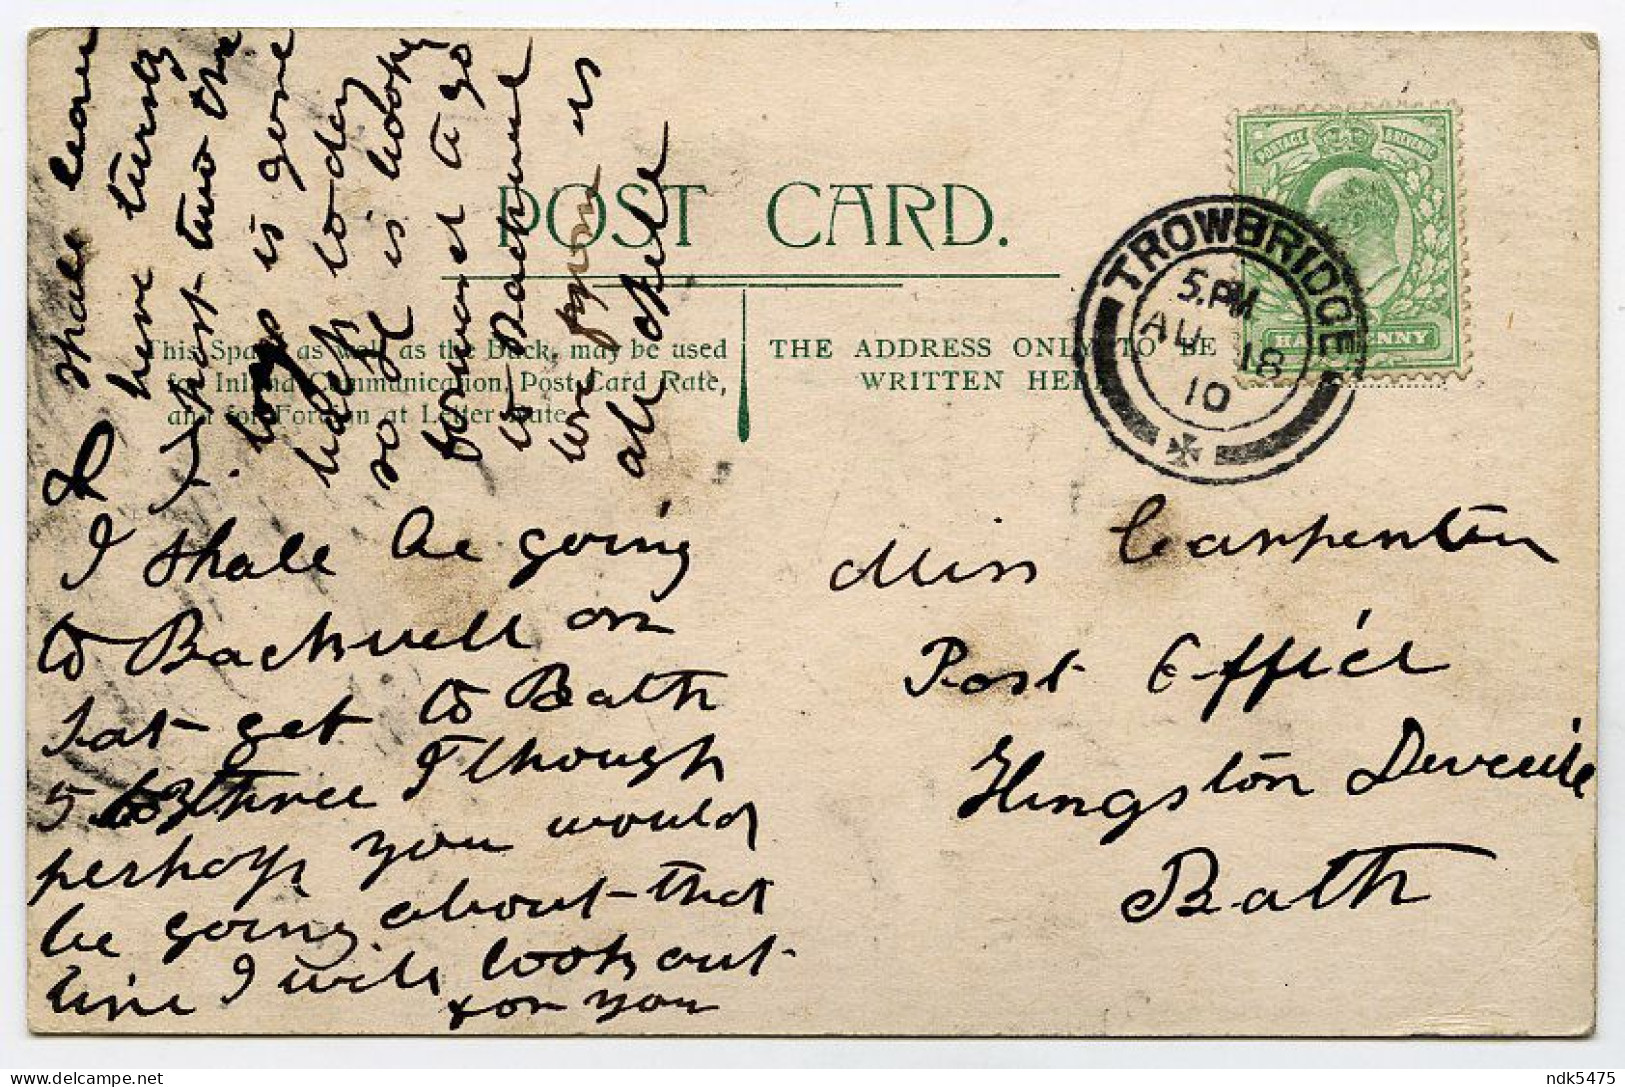 POST CARD.
This Space as well as the back, may be used
for Inland Communication, Post Card Rate,
and for Foreign at Letter Rate.
THE ADDRESS ONLY TO BE
WRITTEN HERE
POSTAGE REVENUE
HALFPENNY
TROWBRIDGE
5.PM
AU 18
10
Miss Carpenter
Post Office
Hingston Deverile
Bath
I shall be going
to Backwell on
Sat- get to Bath
5 three I though
perhaps you would
be going about- that
time I will look out-
for you
I shall leave
here turty
past- two the
is gone
back to day
so he is
forward to go
to Backwell
we is
all well
ndk5475